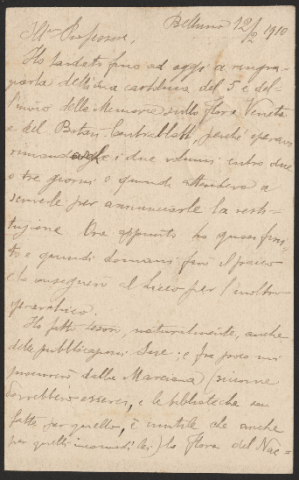 Belluno 12/2 1910
Ill.mo Professore,
Ho tardato fino ad oggi a ringra-
ziarla della sua cartolina del 5 e del-
l'invio delle Memorie sulla flora Veneta
e del Botan. Centralblatt, perché speravo
rimandargli i due volumi entro due
o tre giorni e quindi attendevo a
scriverle per annunciarle la resti-
tuzione. Ora appunto ho quasi fini-
to e quindi domani farò il pacco
e lo consegnerò al Liceo per l'inoltro
Ho fatto tesoro, naturalmente, anche
delle pubblicazioni Sue: e fra poco mi
procurerò dalla Marciana (siccome
dovrebbero esserci, e le biblioteche son
fatte per quello, è inutile che anche
per quelli incomodi lei) la flora del Nac=